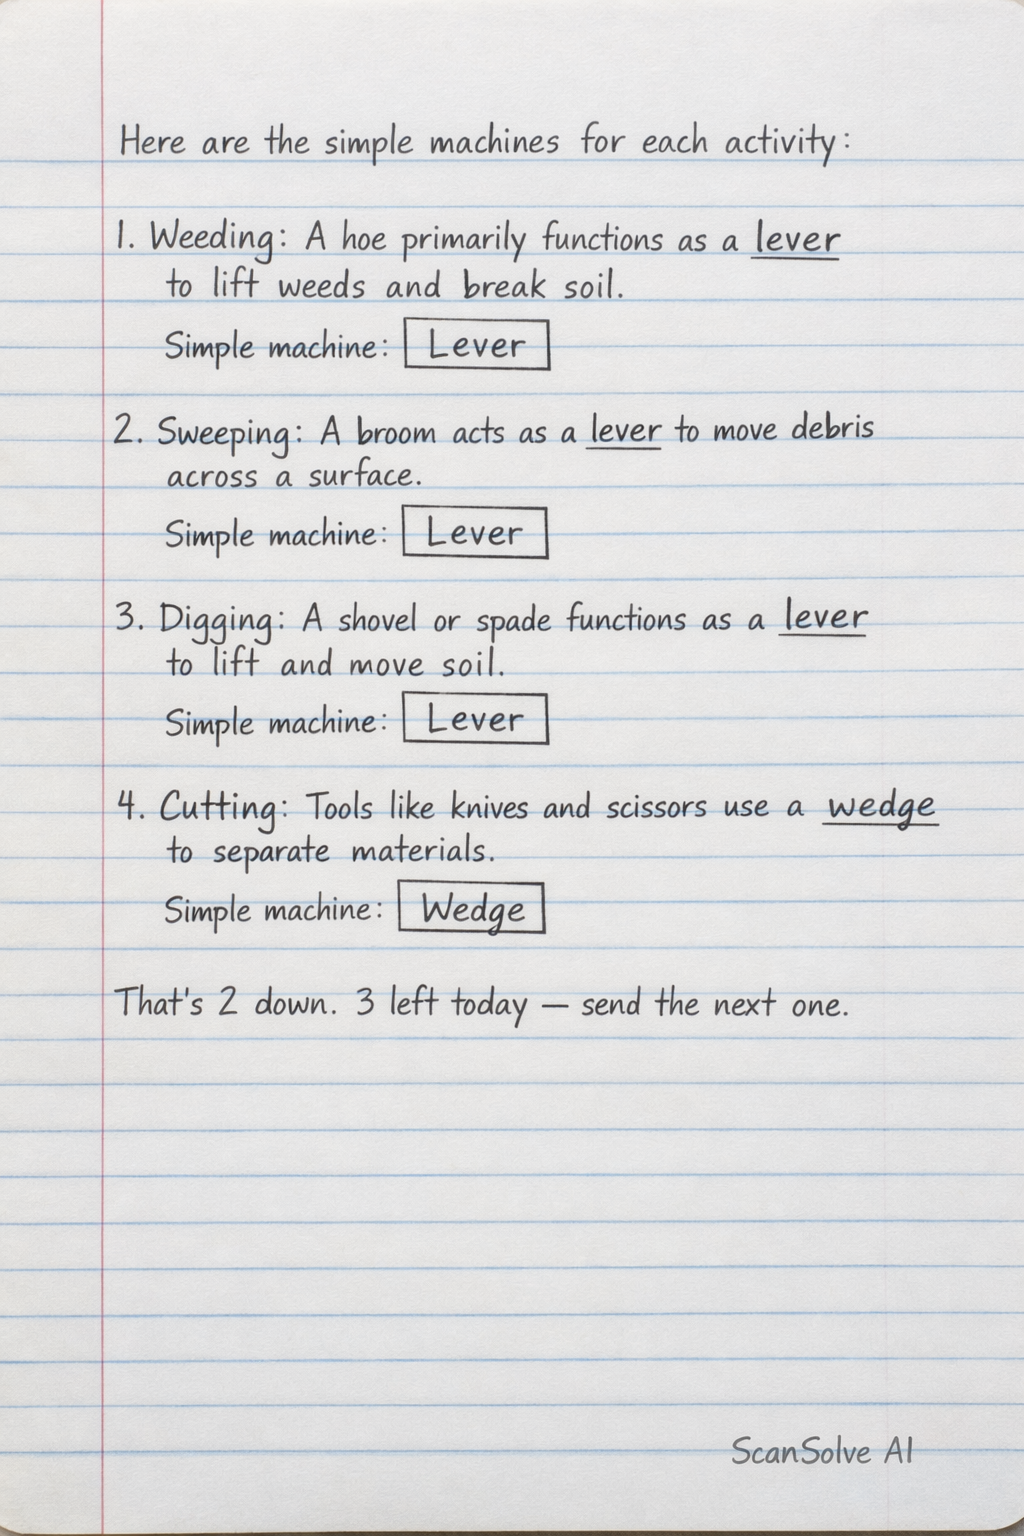 Here are the simple machines for each activity:
1. Weeding: A hoe primarily functions as a lever
to lift weeds and break soil.
Simple machine: Lever
2. Sweeping: A broom acts as a lever to move debris
across a surface.
Simple machine: Lever
3. Digging: A shovel or spade functions as a lever
to lift and move soil.
Simple machine: Lever
4. Cutting: Tools like knives and scissors use a wedge
to separate materials.
Simple machine: Wedge
That's 2 down. 3 left today — send the next one.
ScanSolve AI